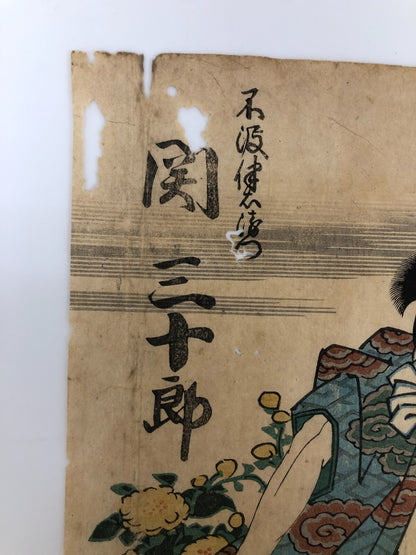 不波伴右衛門
関三十郎